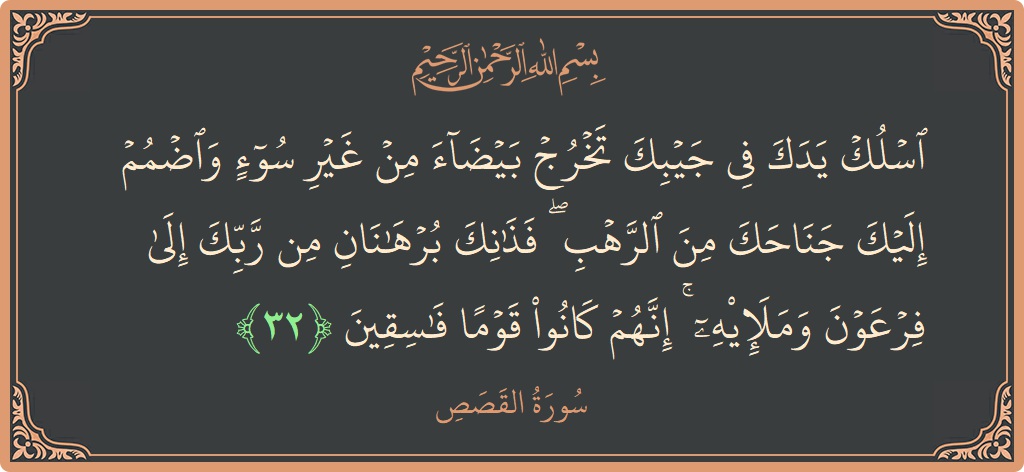 بِسْمِ اللهِ الرَّحْمٰنِ الرَّحِيْمِ
ٱسۡلُكۡ يَدَكَ فِي جَيۡبِكَ تَخۡرُجۡ بَيۡضَآءَ مِنۡ غَيۡرِ سُوٓءٖ وَٱضۡمُمۡ
إِلَيۡكَ جَنَاحَكَ مِنَ ٱلرَّهۡبِۖ فَذَٰنِكَ بُرۡهَٰنَانِ مِن رَّبِّكَ إِلَىٰ
فِرۡعَوۡنَ وَمَلَإِيْهِۦٓۚ إِنَّهُمۡ كَانُواْ قَوۡمٗا فَٰسِقِينَ ﴿٣٢﴾
سُورَةُ القَصَصِ